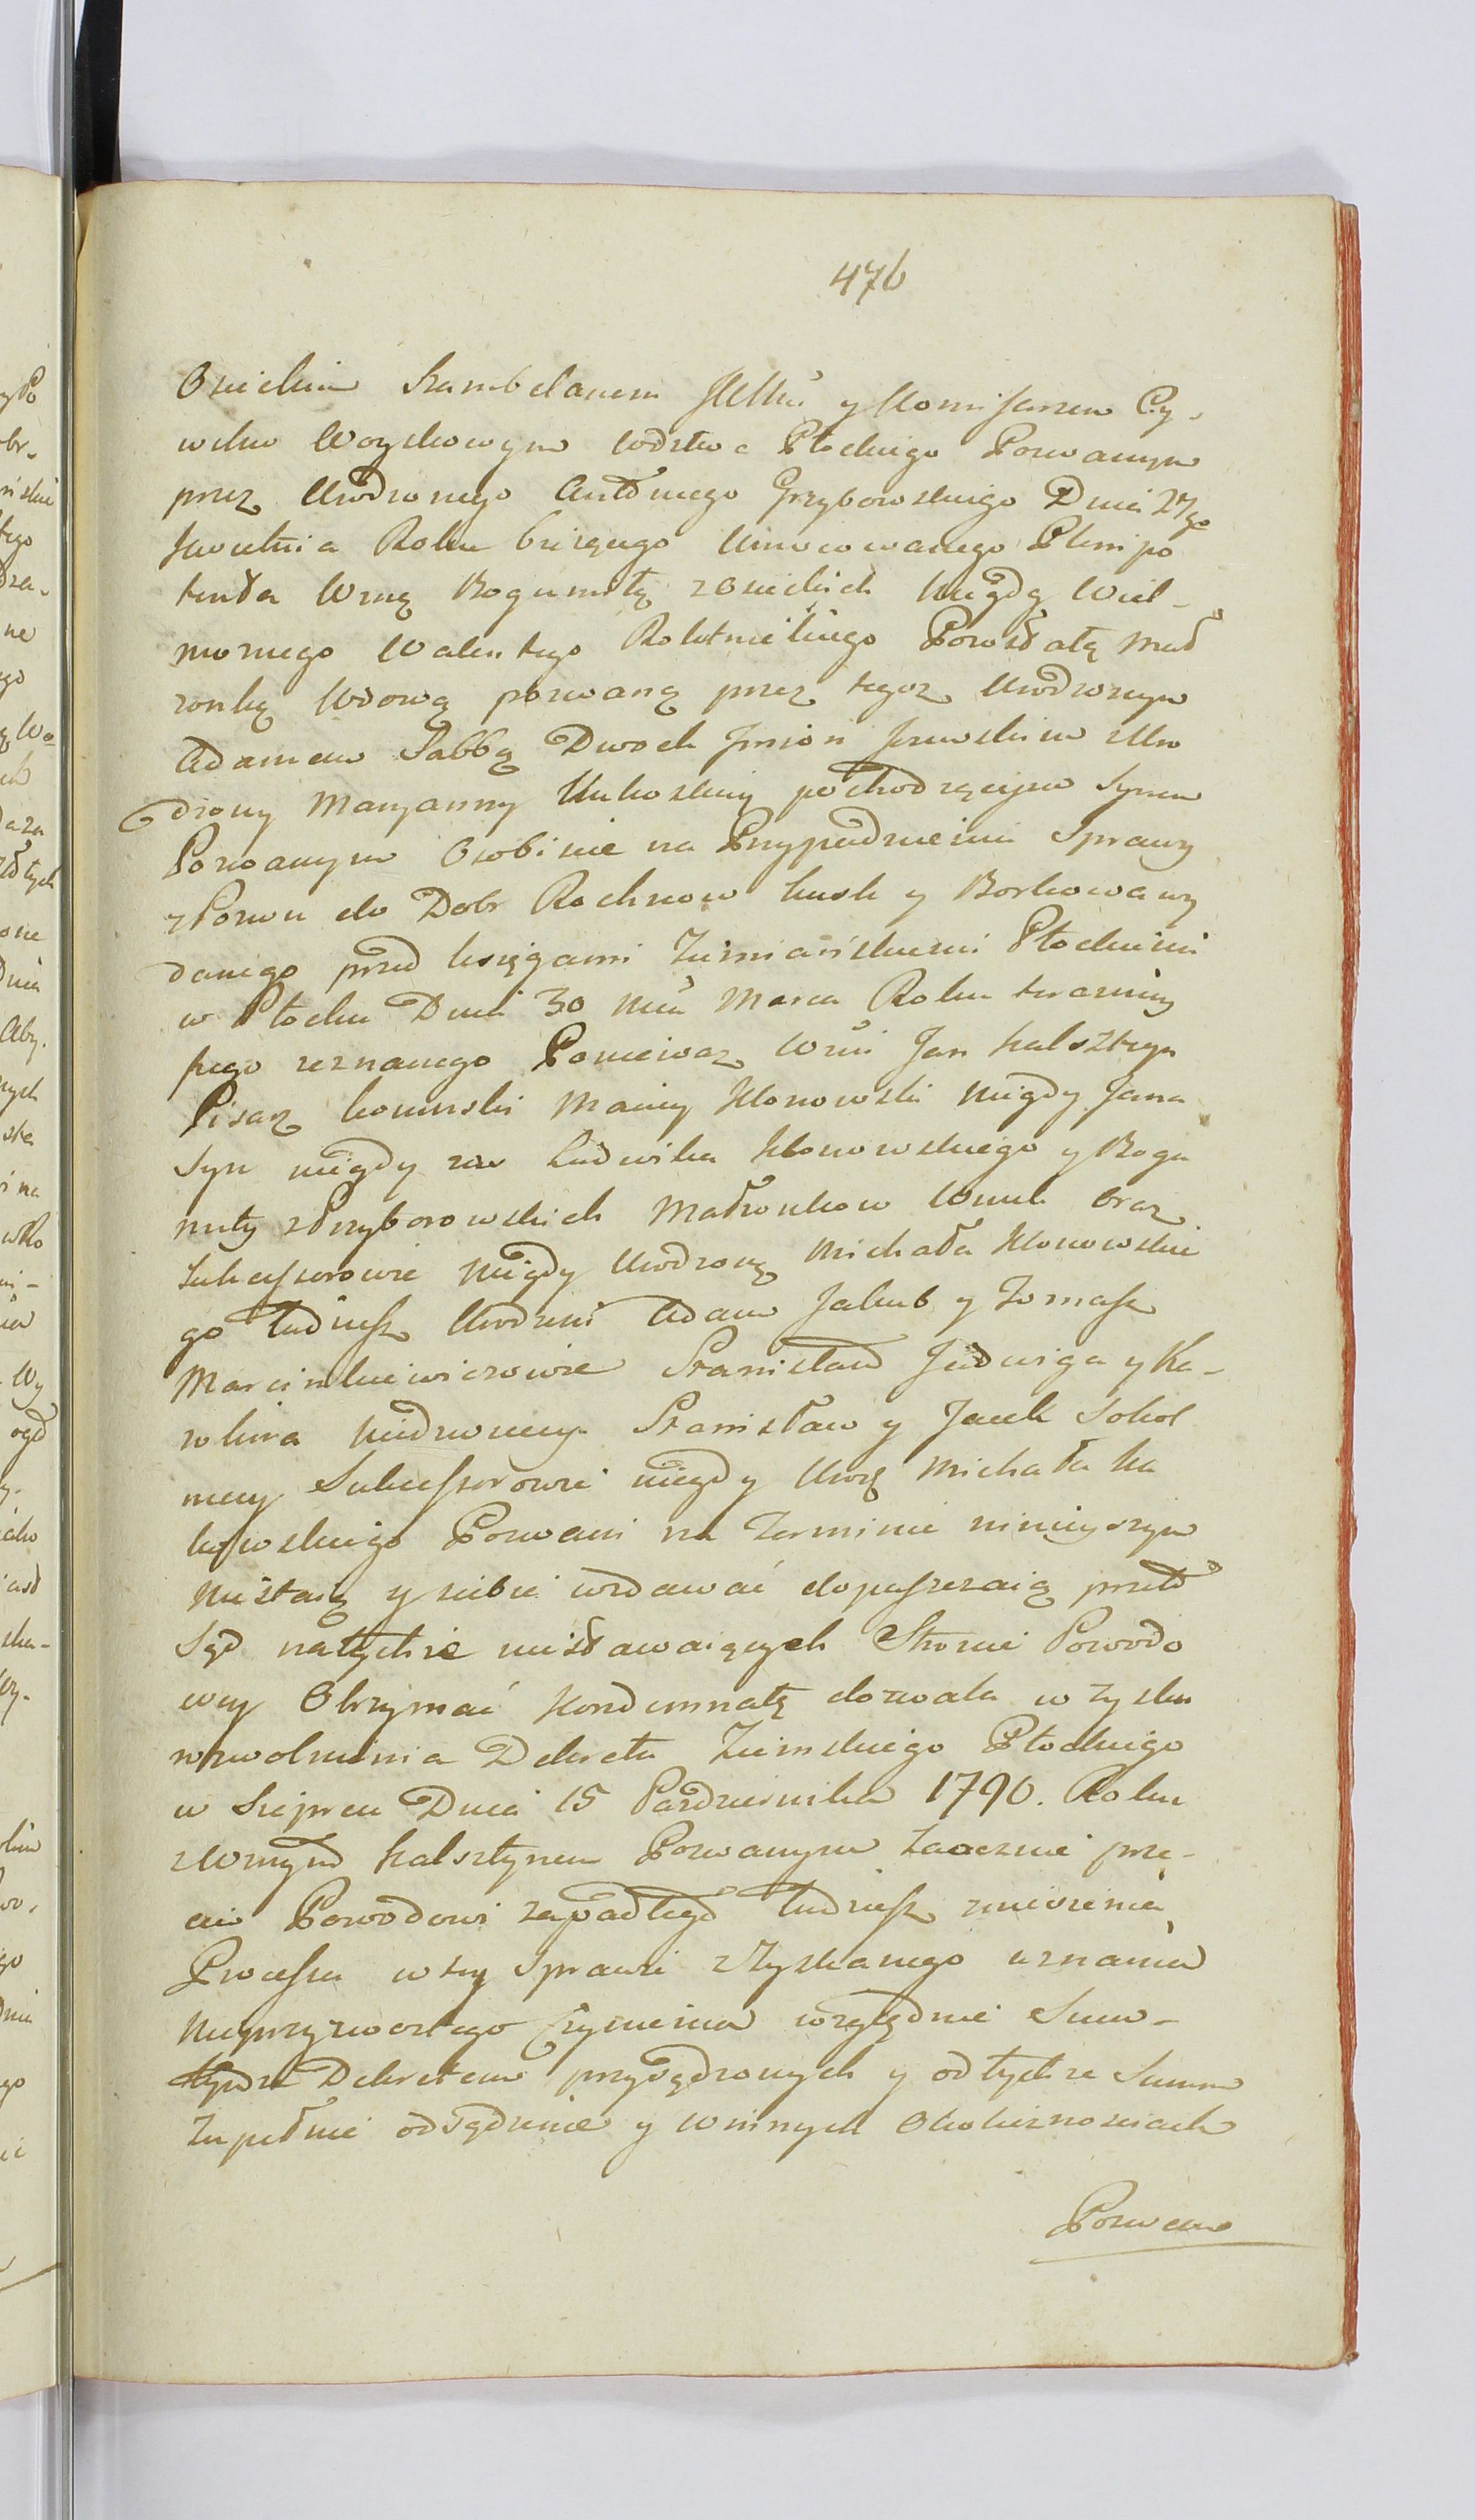 476
Osieckim Szambelanem JKMci y Komissarzem Cy-
wilno Woyskowym Wdztwa Płockiego Pozwanym
przez Urodzonego Antoniego Grzybowskiego Dnia 27go
Kwietnia Roku bieżącego Umocowanego Plenipo
tenta Wną Bogumiłę z Osieckich Niegdy Wiel-
możnego Walentego Rokitnickiego Pozostałą Mał
żonkę Wdowę pozwaną przez tegoż Urodzonym
Adamem Sabbą Dwoch Imion
dzony Maryanny pochodzącym Synem
Pozwanym Osobiście na Przypadnieniu Sprawy
z Pozwu do Dobr Rochnow Kusk y Borkowa wy
danego przed Księgami Ziemiańskiemi Płockiemi
w Płocku Dnia 30 Mca Marca Roku terazniey
szego zeznanego Ponieważ Wni Jan Kalsztyn
Pisarz Komorski Maciey Klonowski Niegdy Jana
Syn niegdy zaś Ludwika Klonowskiego y Bogu
miły z Przyborowskich Małżonkow Wnuk oraz
Sukcessorowie Niegdy Urodzonego Michała Klonowskie
go Tudziesz Urodzeni Adam Jakub y Tomasz
Marcinkiewiczowie Stanisław Jadwiga y Ka-
rolina Stanisław y Jacek Sokol
niccy Sukcessorowie niegdy Urodzonego Michała
Pozwani na Terminie ninieyszym
Niestaią y siebie wzdawać dopuszczaią przeto
Sąd na tychże niestawaiących Stronie Powodo
wey Otrzymać Kondemnatę dozwala w zysku
uwolnienia Dekretu Ziemskiego Płockiego
w Sierpcu Dnia 15 Pazdziernika 1790. Roku
z Wnym Kalsztynem Pozwanym Zaocznie prze-
ciw Powodowi zapadłego Tudziesz zniesienia
Processu w tey Sprawie Zyskanego uznania
Nieprzyzwoitego Czynienia względnie Summ
tymże Dekretem przysądzonych y od tychże Summ
Zupełnie odsądzenie y w innych Okolicznosciach
Pozwem